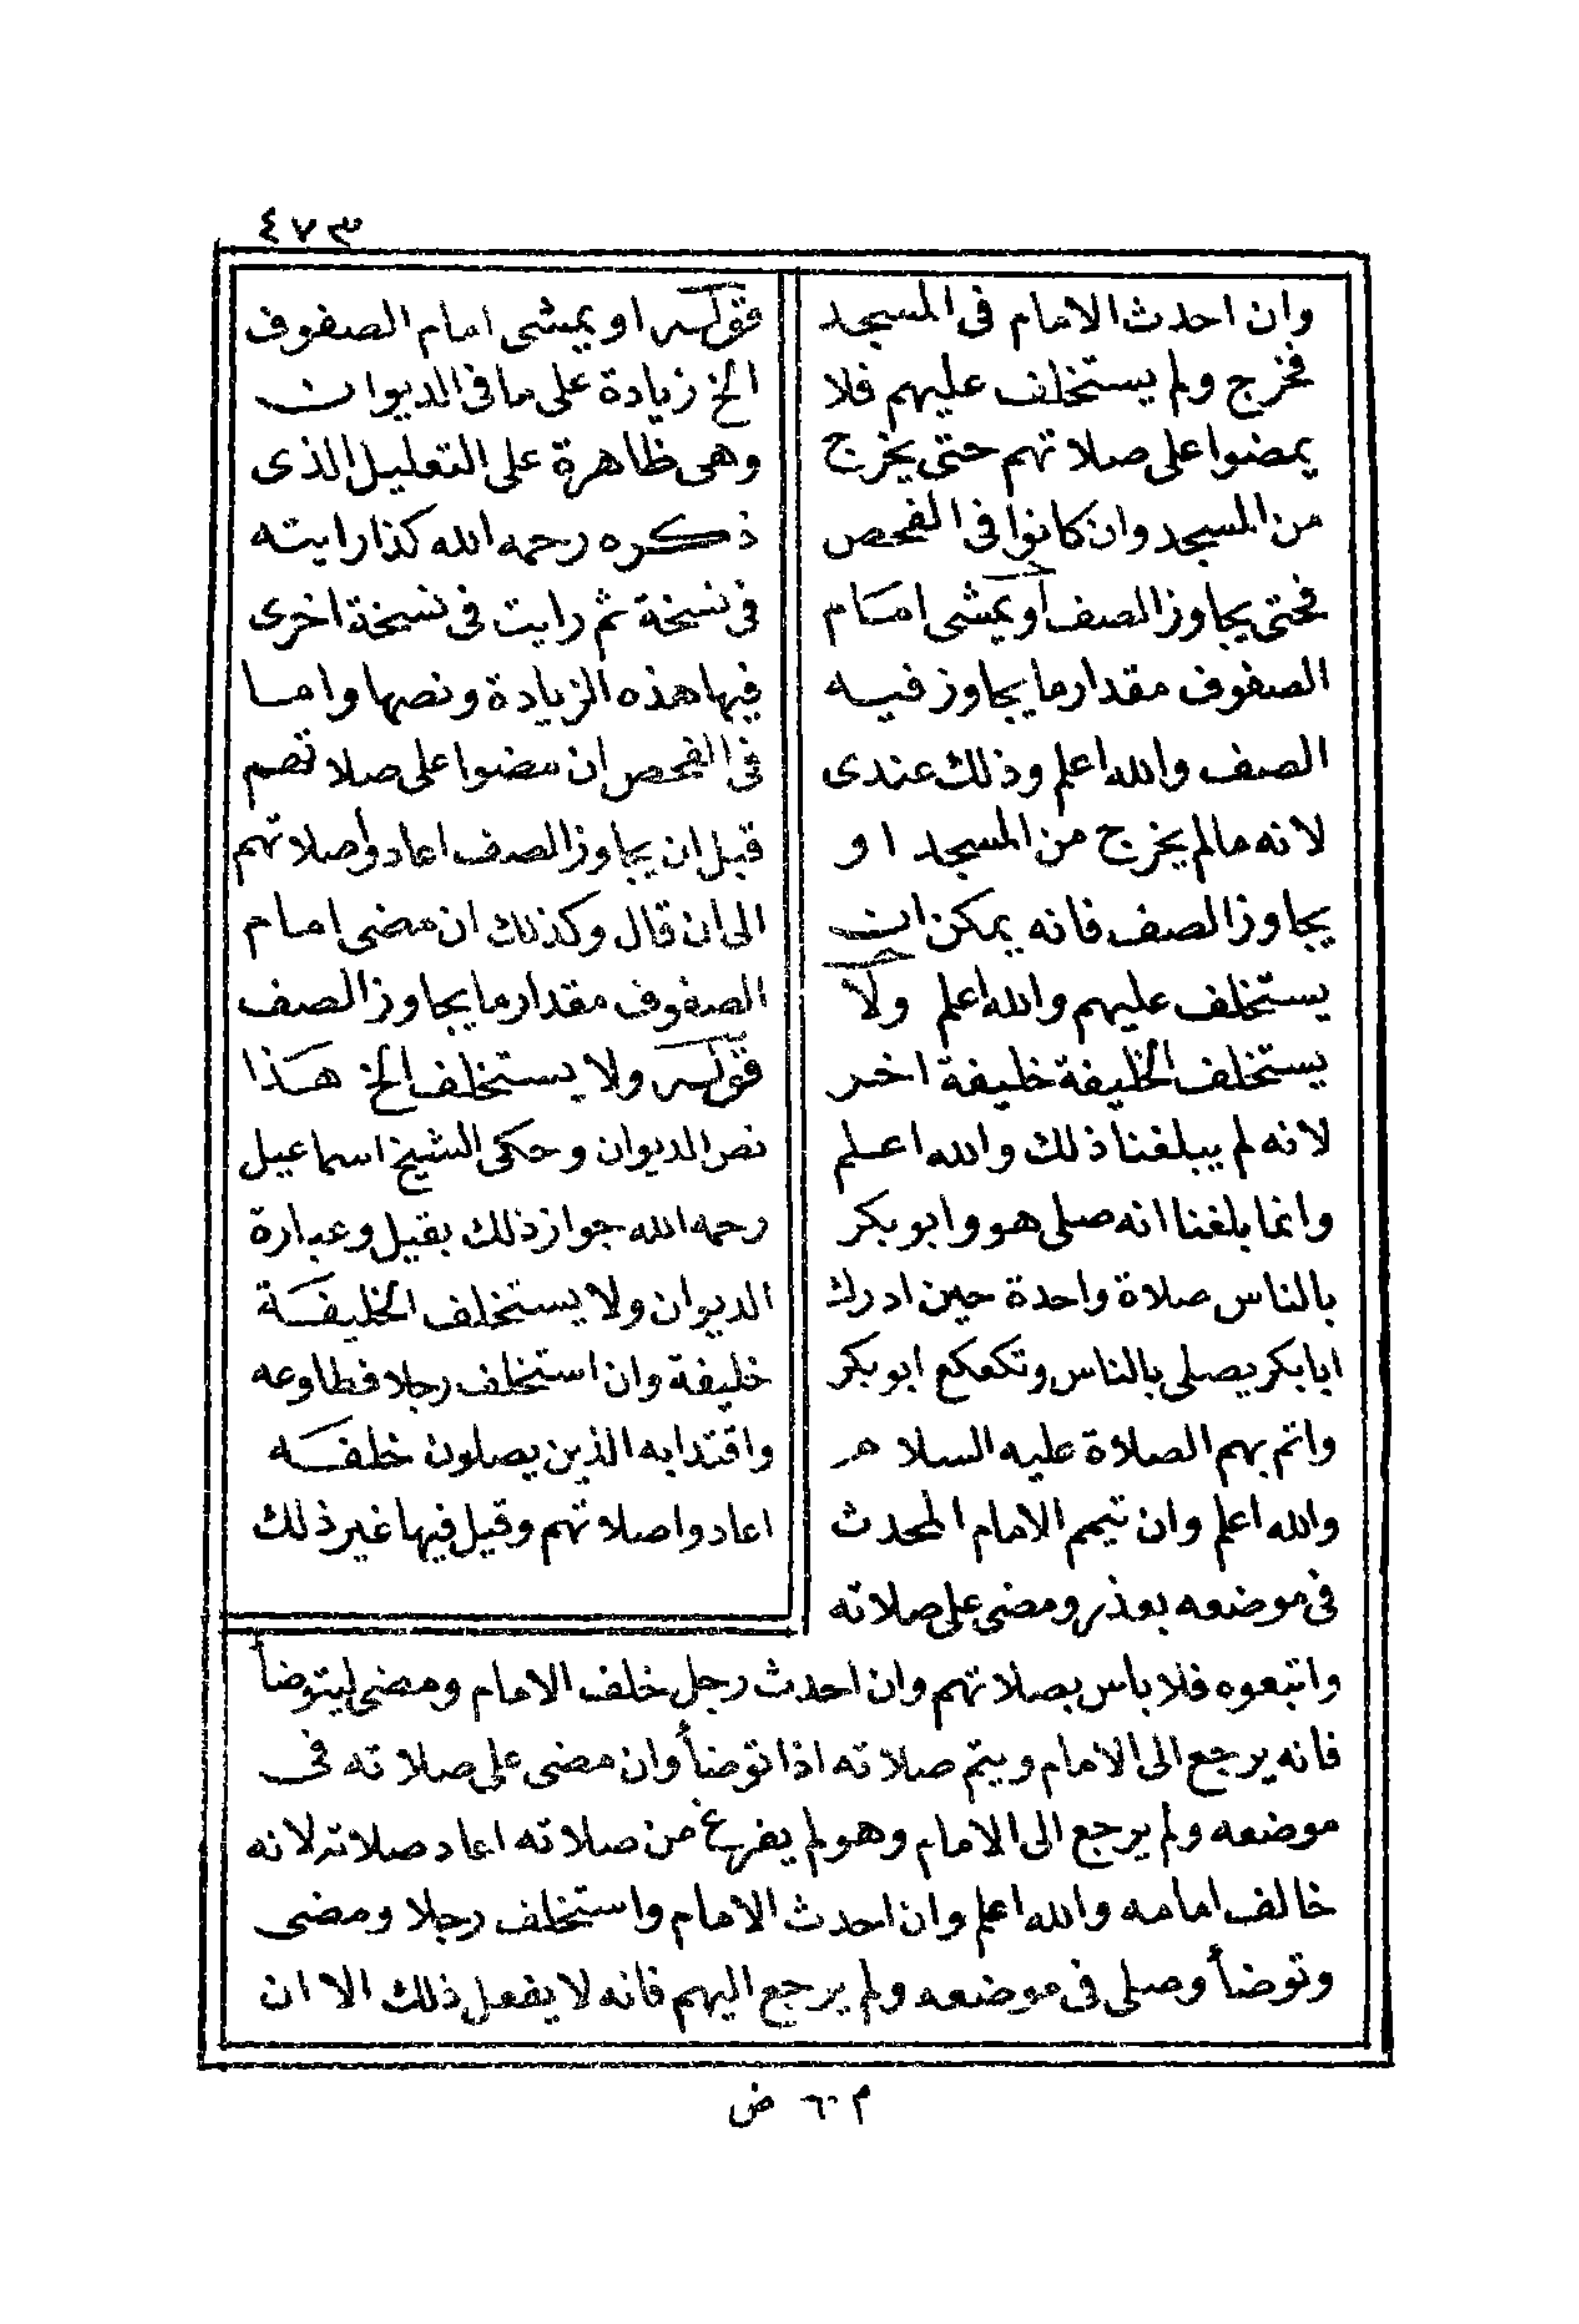 ٤٧٣
وان احدث الامام فى المسجد
فخرج ولم يستخلف عليهم فلا
يمضوا على صلاتهم حتى يخرج
من المسجد وان كانوا فى الفحص
فحتى يجاوز الصف او يمشى امام
الصفوف مقدار ما يجاوز فيه
الصف والله اعلم وذلك عندى
لانه ما لم يخرج من المسجد او
يجاوز الصف فانه يمكن ان
يستخلف عليهم والله اعلم ولا
يستخلف الخليفة خليفة اخر
لانه لم يبلغنا ذلك والله اعلم
وانما بلغنا انه صلى هو وابو بكر
بالناس صلاة واحدة حين ادرك
ابا بكر يصلى بالناس وتكعكع ابو بكر
واتم بهم الصلاة عليه السلام
والله اعلم وان تيمم الامام المحدث
فى موضعه بعذر ومضى على صلاته
قوله او يمشى امام الصفوف
الخ زيادة على ما فى الديوان
وهى ظاهرة على التعليل الذى
ذكره رحمه الله كذا رايته
فى نسخة ثم رايت فى نسخة اخرى
فيها هذه الزيادة ونصها واما
فى الفحص ان مضوا على صلاتهم
قبل ان يجاوز الصف اعادوا صلاتهم
الى ان قال وكذلك ان مضى امام
الصفوف مقدار ما يجاوز الصف
قوله ولا يستخلف الخ هذا
نص الديوان وحكى الشيخ اسماعيل
رحمه الله جواز ذلك بقيل وعبارة
الديوان ولا يستخلف الخليفة
خليفة وان استخلف رجلا فطاوعه
واقتدا به الذين يصلون خلفه
اعادوا صلاتهم وقيل فيها غير ذلك
واتبعوه فلا باس بصلاتهم وان احدث رجل خلف الامام ومضى ليتوضأ
فانه يرجع الى الامام ويتم صلاته اذا توضأ وان مضى على صلاته فى
موضعه ولم يرجع الى الامام وهو لم يفرغ من صلاته اعاد صلاته لانه
خالف امامه والله اعلم وان احدث الامام واستخلف رجلا ومضى
وتوضأ وصلى فى موضعه ولم يرجع اليهم فانه لا يفعل ذلك الا ان
م ٦٠ ض